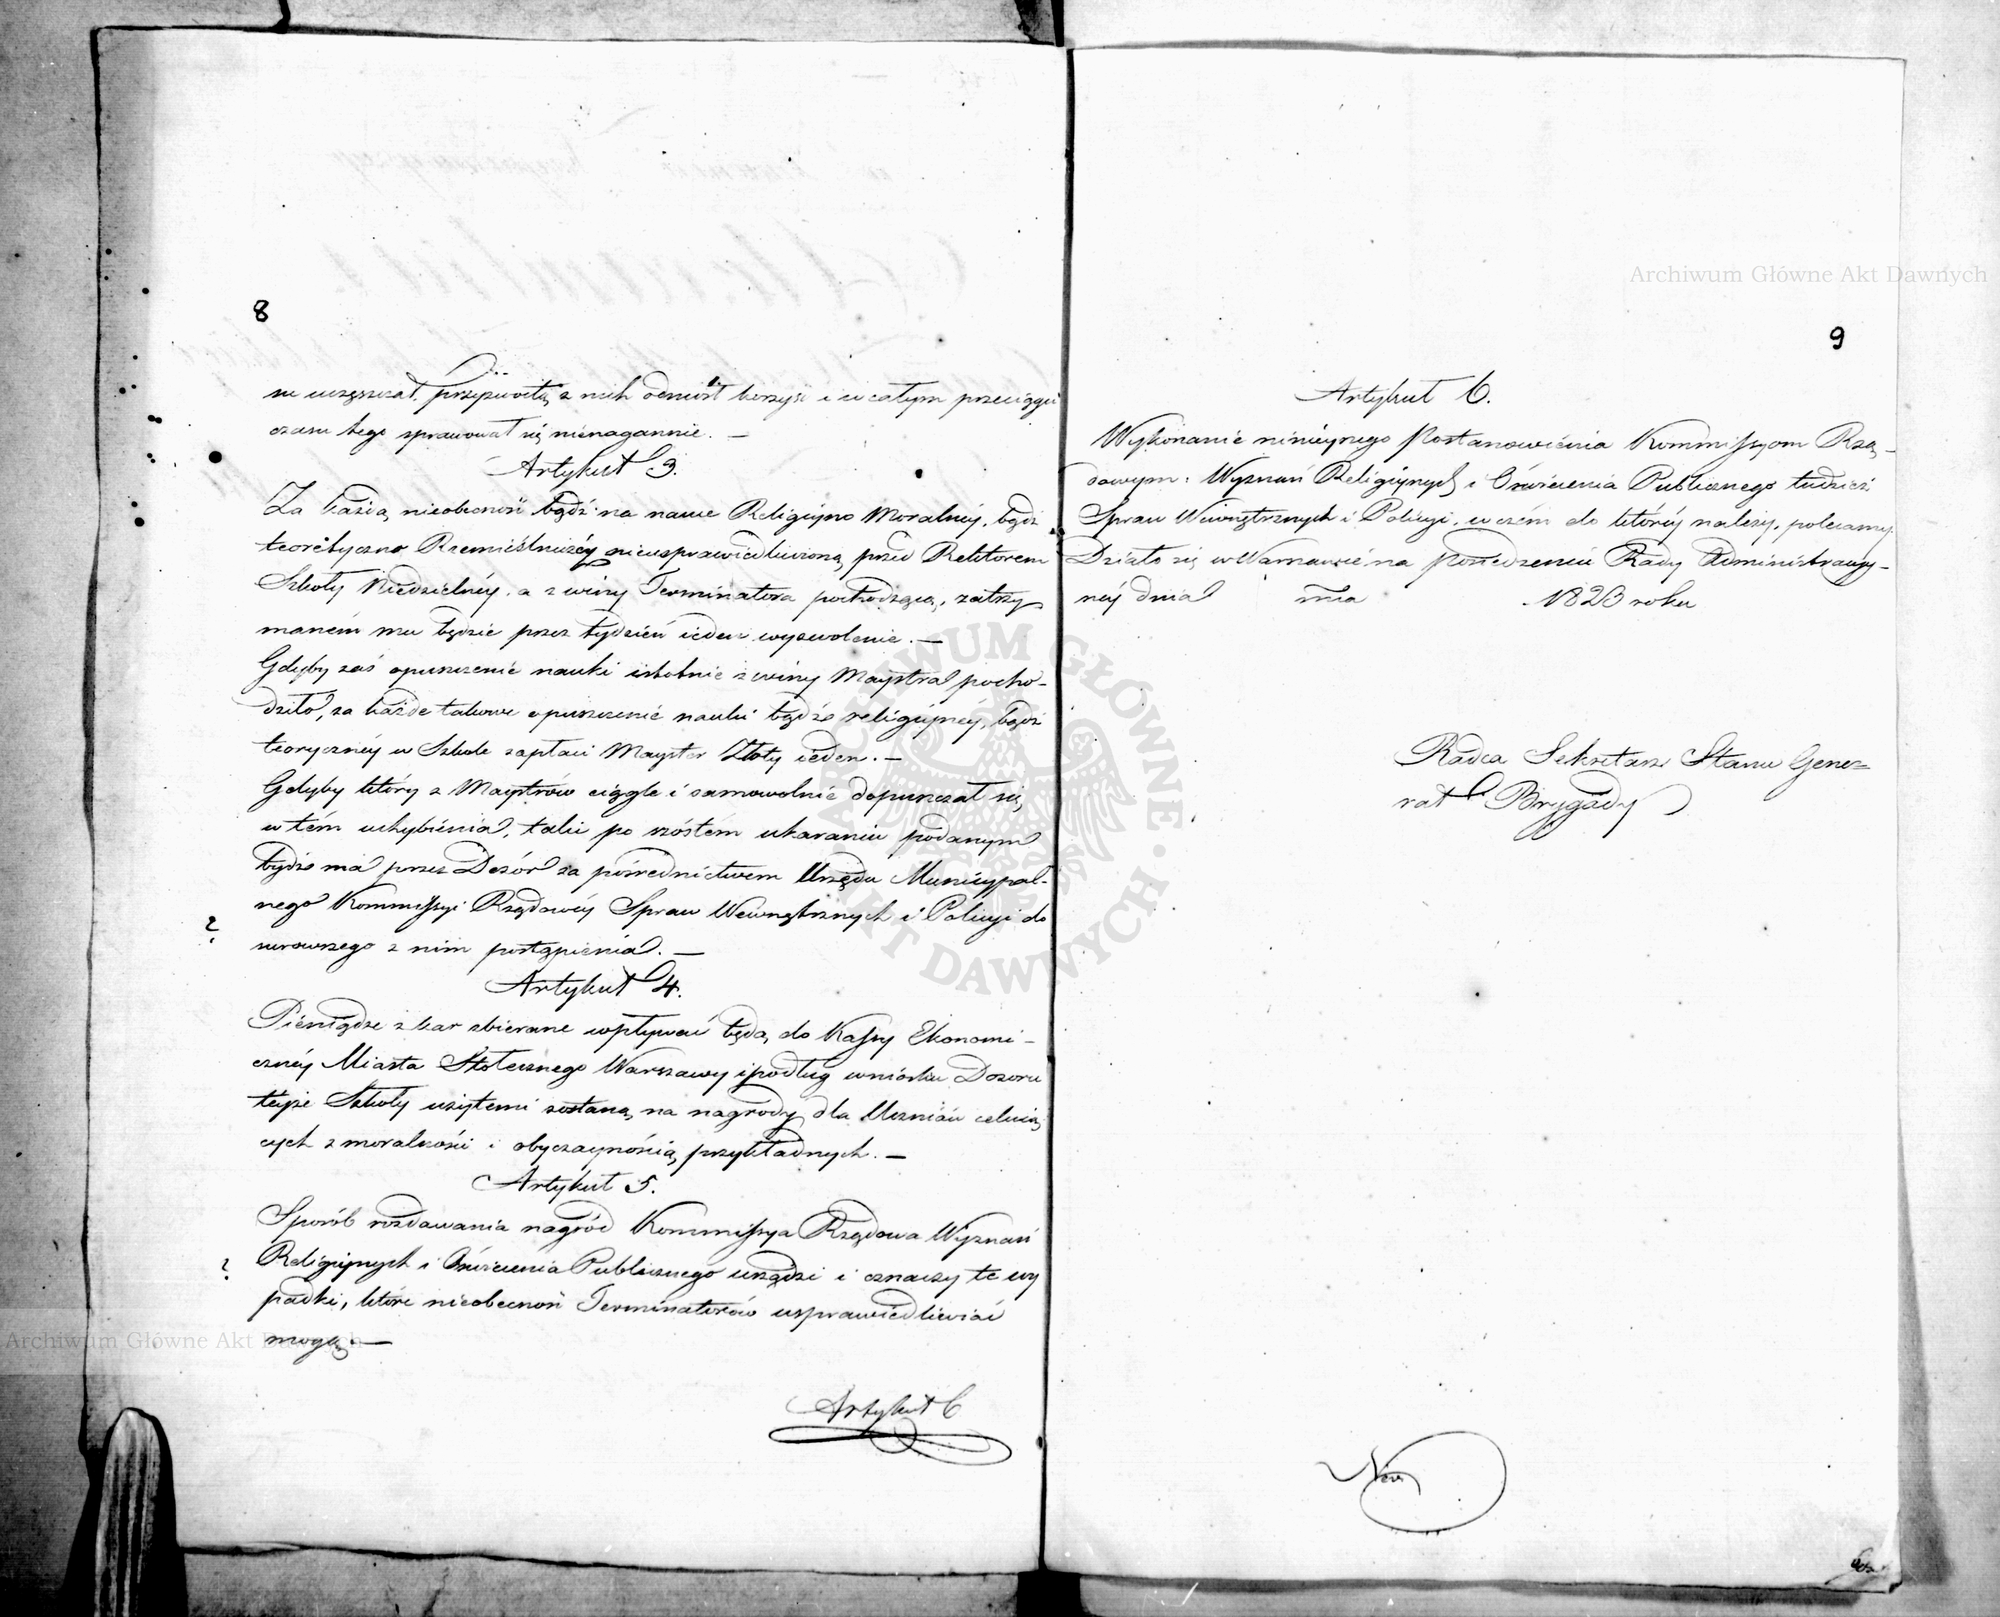 8
na uczęszczał, przyzwoitą z nich odniósł korzyść i w całym przeciągu
czasu tego sprawował się nienagannie. —
Artykuł 3.
Za każdą nieobecność bądź na nauce Religijno Moralnéy, bądź
teorétyczno Rzemieślniczéy nieusprawiedliwioną przed Rektorem
Szkoły Niedzielnéy, a z winy Terminatora pochodzącą, zatrzy
maném mu będzie przez tydzień ieden wyzwolenie. —
Gdyby zaś opuszczenie nauki istotnie z winy Maystra pocho-
dziło, za każde takowe opuszczenie nauki bądź religijnéy, bądź
teoryczney w Szkole zapłaci Mayster Złoty ieden. —
Gdyby który z Maystrów ciągle i samowolnie dopuszczał się
w tém uchybienia, taki po szóstém ukaraniu podanym
bydź ma przez Dozór za pośrednictwem Urzędu Municypal-
nego Kommissyi Rządowéy Spraw Wewnętrznych i Policyi do
surowszego z nim postąpienia. —
?
Artykuł 4.
Pieniądze z kar zbierane wpływać będą do Kassy Ekonomi-
cznéy Miasta Stołecznego Warszawy i podług wniosku Dozoru
teyże Szkoły użytemi zostaną na nagrody dla Uczniów celuią
cych z moralności i obyczayności przykładnych. —
Artykuł 5.
Sposób rozdawania nagród Kommissya Rządowa Wyznań
Religijnych i Oświecenia Publicznego urządzi i oznaczy te wy
?
padki, które nieobecność Terminatorów usprawiedliwiać
mogą. —
Artykuł 6
9
Artykuł 6.
Wykonanie ninieyszego Postanowienia Kommissyom Rzą-
dowym: Wyznań Religijnych i Oświecenia Publicznego tudzież
Spraw Wewnętrznych i Policyi, w czém do któréy należy, polecamy.
Działo się w Warszawie na Posiedzeniu Rady Administracyy-
néy dnia mca 1823 roku
Radca Sekretarz Stanu Gene-
rał Brygady
Archiwum Główne Akt Dawnych
Archiwum Główne Akt Dawnych
ARCHIWUM GŁÓWNE AKT DAWNYCH